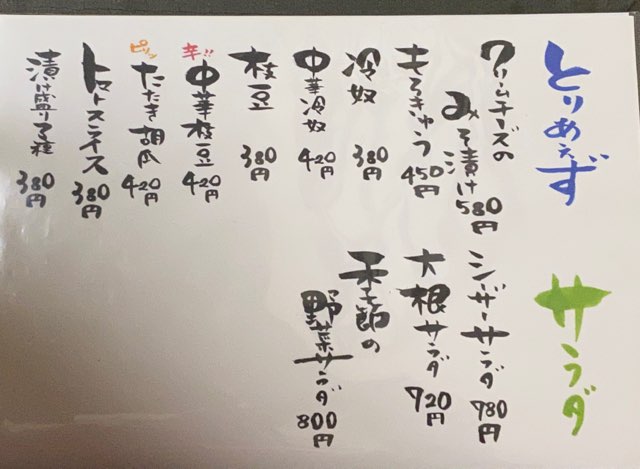 とりあえず
クリームチーズの
みそ漬け 580円
もろきゅう 450円
冷奴 380円
中華冷奴 420円
枝豆 380円
辛!! 中華枝豆 420円
ピリッ たたき胡瓜 420円
トマトスライス 380円
漬け盛り3種 380円
サラダ
シーザーサラダ 780円
大根サラダ 720円
季節の
野菜サラダ 800円